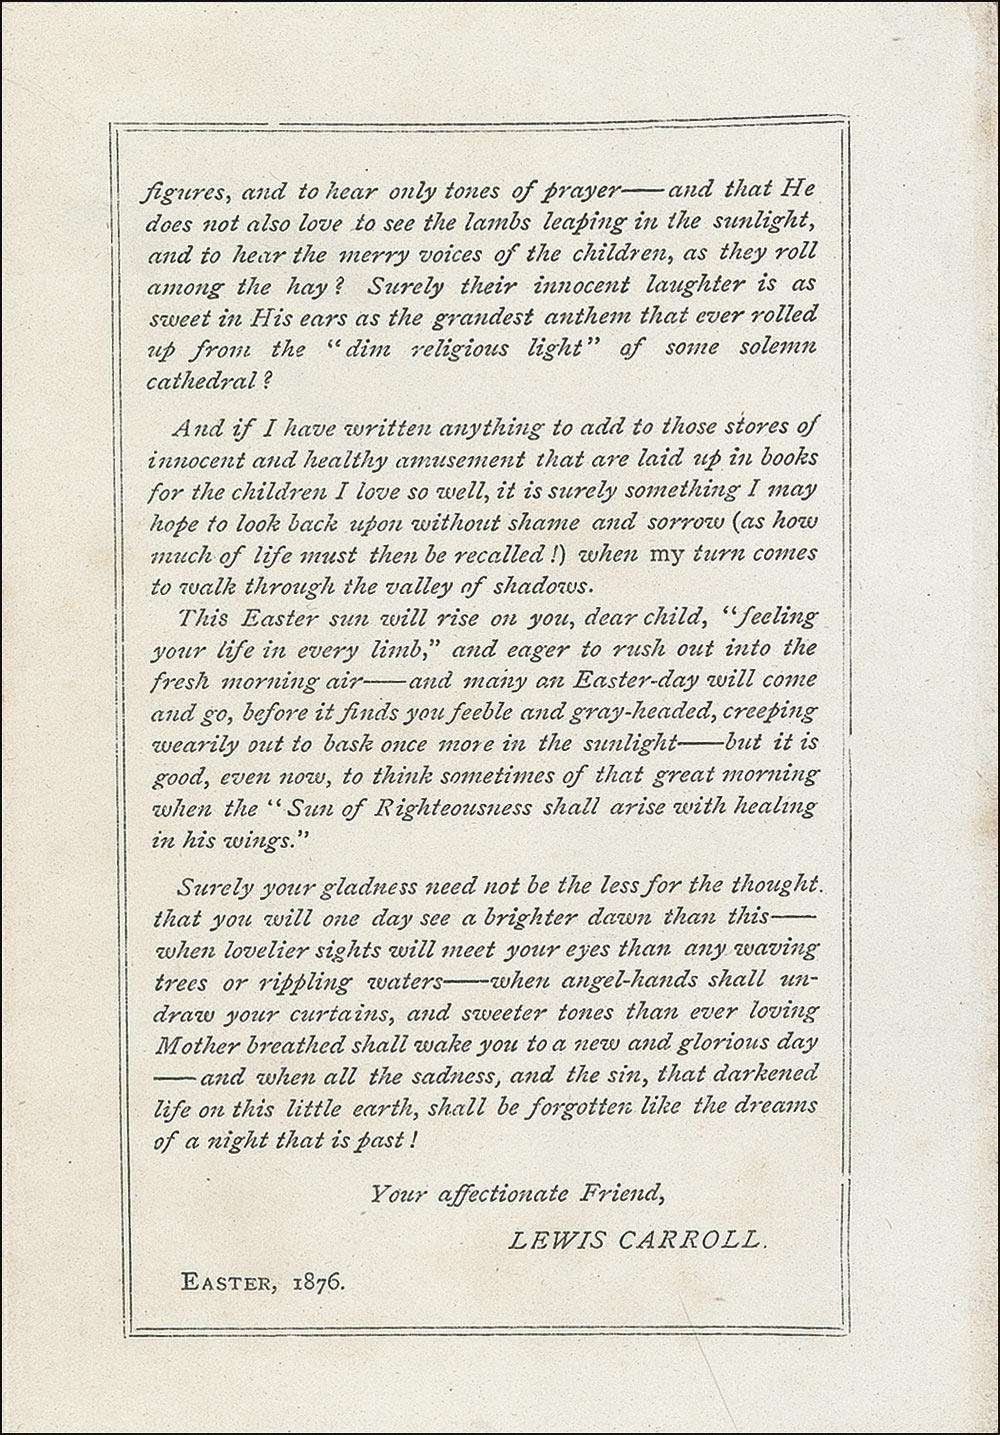 figures, and to hear only tones of prayer——and that He
does not also love to see the lambs leaping in the sunlight,
and to hear the merry voices of the children, as they roll
among the hay? Surely their innocent laughter is as
sweet in His ears as the grandest anthem that ever rolled
up from the “dim religious light” of some solemn
cathedral?
And if I have written anything to add to those stores of
innocent and healthy amusement that are laid up in books
for the children I love so well, it is surely something I may
hope to look back upon without shame and sorrow (as how
much of life must then be recalled!) when my turn comes
to walk through the valley of shadows.
This Easter sun will rise on you, dear child, “feeling
your life in every limb,” and eager to rush out into the
fresh morning air——and many an Easter-day will come
and go, before it finds you feeble and gray-headed, creeping
wearily out to bask once more in the sunlight——but it is
good, even now, to think sometimes of that great morning
when the “Sun of Righteousness shall arise with healing
in his wings.”
Surely your gladness need not be the less for the thought
that you will one day see a brighter dawn than this——
when lovelier sights will meet your eyes than any waving
trees or rippling waters——when angel-hands shall un-
draw your curtains, and sweeter tones than ever loving
Mother breathed shall wake you to a new and glorious day
——and when all the sadness, and the sin, that darkened
life on this little earth, shall be forgotten like the dreams
of a night that is past!
Your affectionate Friend,
LEWIS CARROLL.
EASTER, 1876.